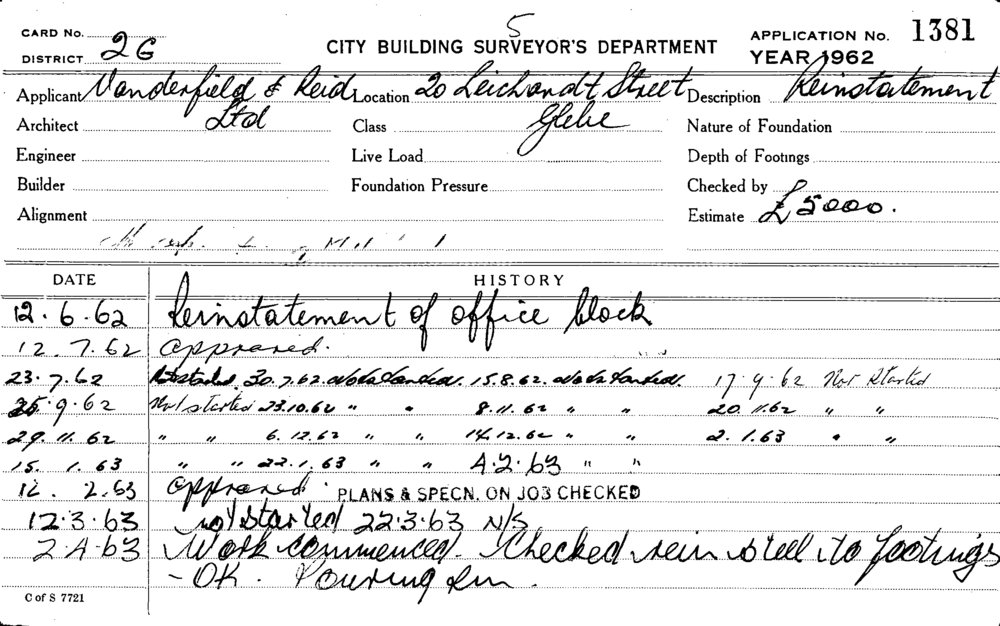 5
CARD No. CITY BUILDING SURVEYOR'S DEPARTMENT APPLICATION No. 1381
DISTRICT 2G YEAR 1962
Applicant Vanderfield & Reid Location 20 Leichardt Street Description Reinstatement
Architect Ltd Class Glebe Nature of Foundation
Engineer Live Load Depth of Footings
Builder Foundation Pressure Checked by
Alignment Estimate £5000.
DATE HISTORY
12.6.62 Reinstatement of office block
12.7.62 Approved.
23.7.62 Not started. 30.7.62. Not started. 15.8.62. Not started. 17.9.62 Not Started
25.9.62 Not started 23.10.62 " " 8.11.62 " " 20.11.62 " "
29.11.62 " " 6.12.62 " " 14.12.62 " " 2.1.63 " "
15.1.63 " " 22.1.63 " " 4.2.63 " "
12.2.63 Approved. PLANS & SPECN. ON JOB CHECKED
12.3.63 Not Started 22.3.63 N/S
2.4.63 Work commenced. Checked rein steel to footings
- OK. Pouring
C of S 7721